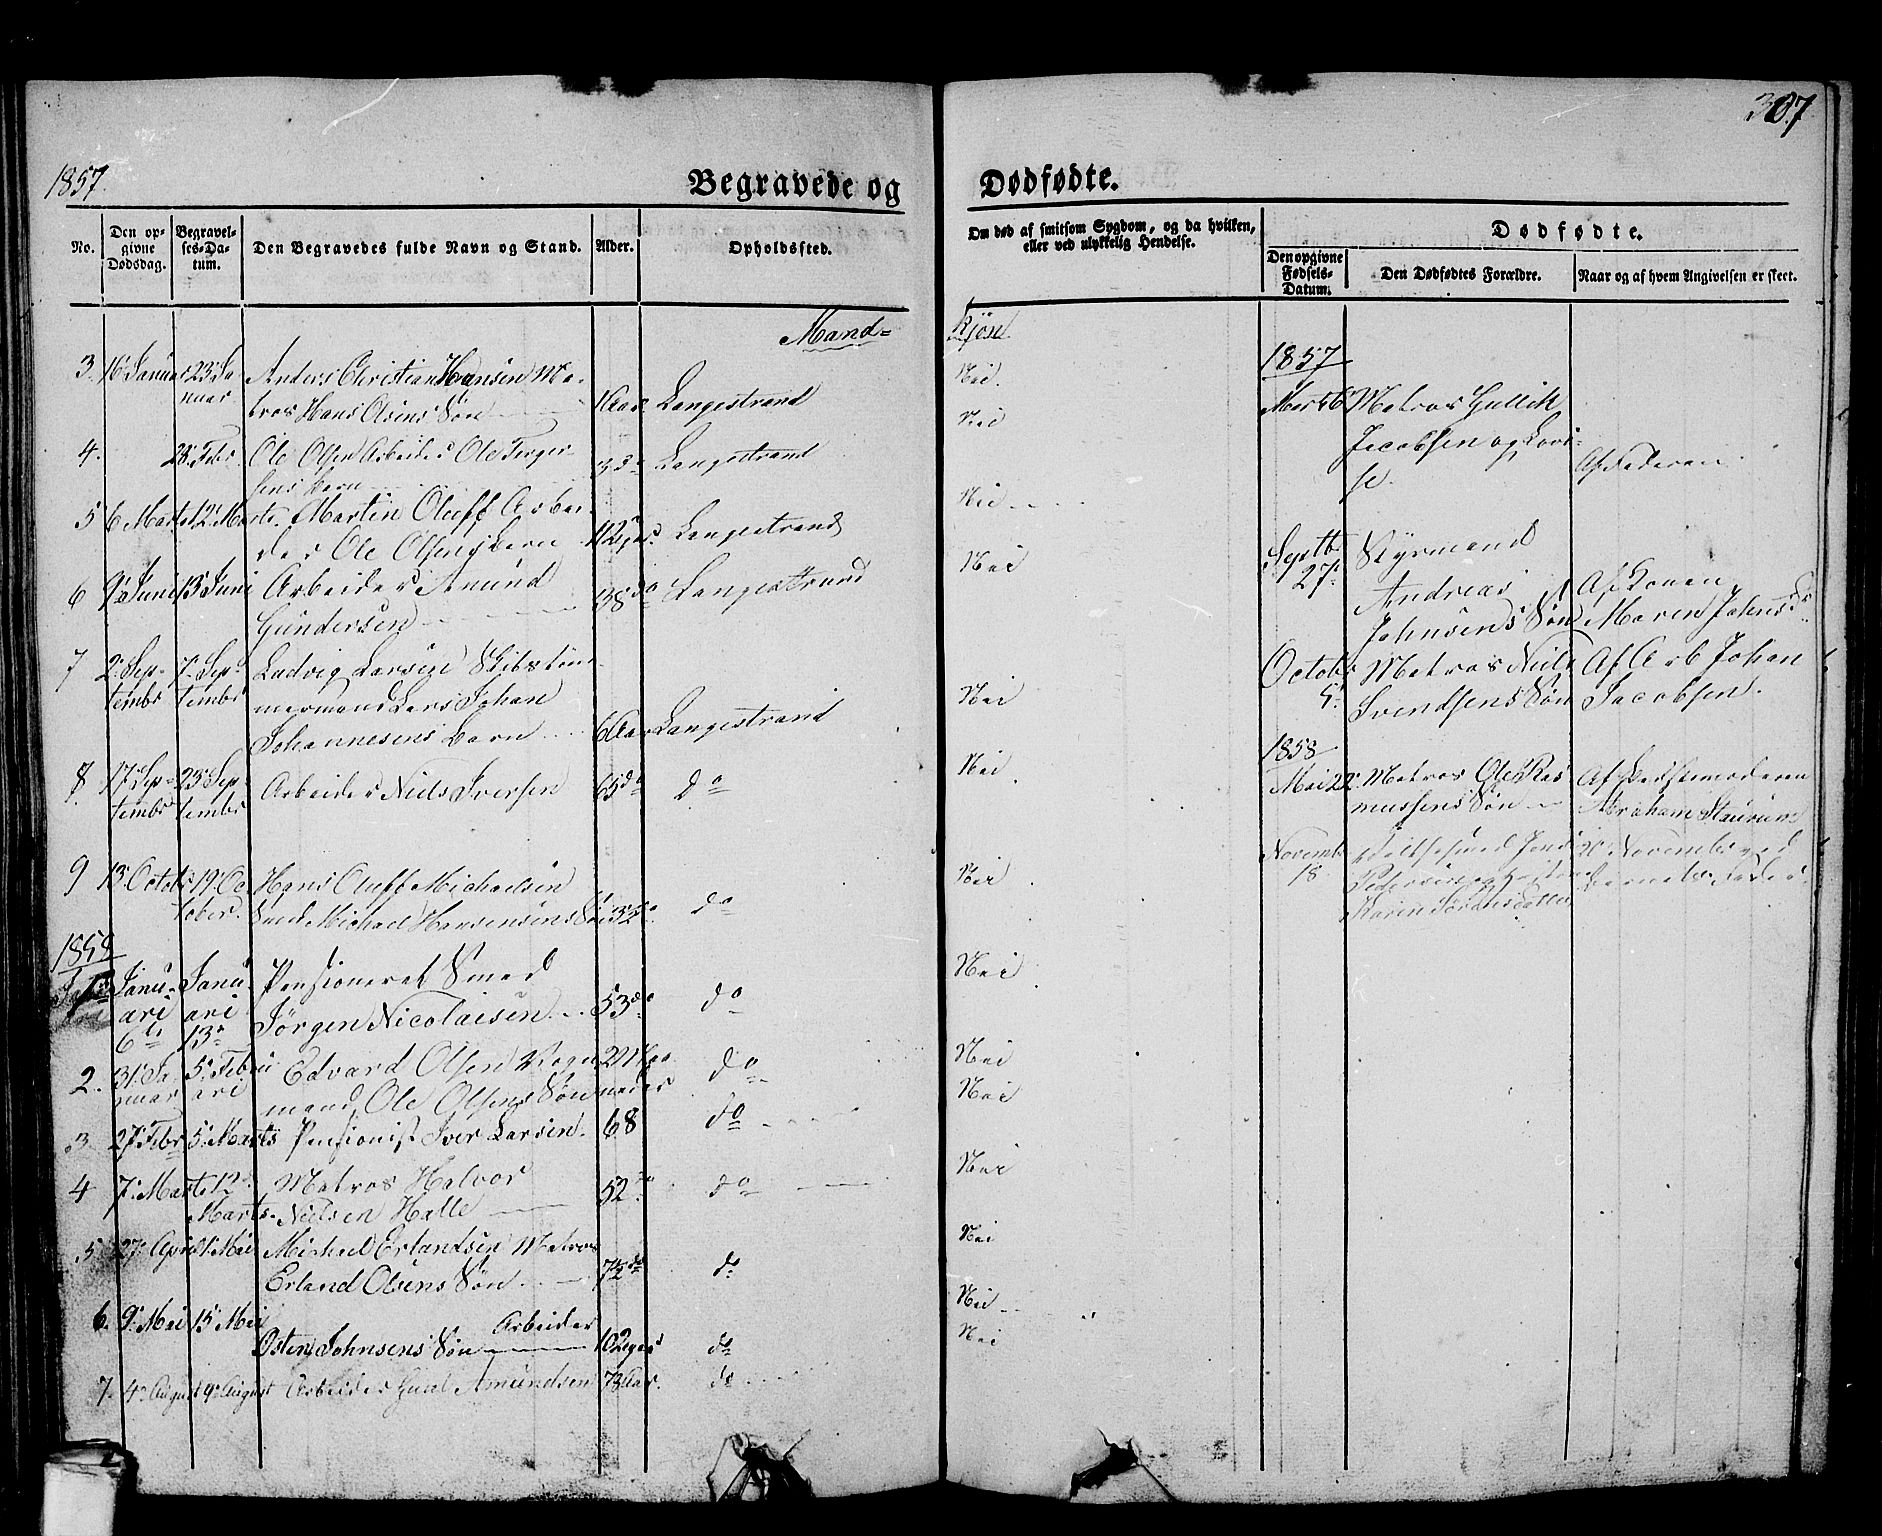 307
1857.
Begravede og Dødfødte.
No.
Den op-
givne
Dødsdag.
Begravel-
ses-Da-
tum.
Den Begravedes fulde Navn og Stand.
Alder.
Opholdssted.
Om død af smitsom Sygdom, og da hvilken,
eller ved ulykkelig Hendelse.
Dødfødte.
Den opgivne
Fødsels-
Datum.
Den Dødfødtes Forældre.
Naar og af hvem Angivelsen er skeet.
Mand= Kjøn
3. 16 Januar 23 Ja Anders Christian Hansen Ma-
nuar tros Hans Olsens Søn 1 Aar Langestrand Nei.
4. 28 Febr Ole Olsen Arbeider Ole Terger-
sens Barn 3 do Langestrand Nei
5 6 Marts 12 Marts. Martin Oluff Arbei-
der Ole Olsens Barn Langestrand Nei
6 9 Juni 13 Juni Arbeider Amund
Gundersen 38 do Langestrand Nei
7 2 Sep- 7 Sep- Ludvig Larsen Skibstøm-
tembr tembr mermand Lars Johan
Johannesens Barn 6 Aar Langestrand Nei
8. 17 Sep- 23 Sep- Arbeider Niels Iversen 65 do do Nei
tembr tembr
9 13 Octobr 19 Oc Hans Oluff Michaelsen
tober. Smed Michael Hansens Søn do Nei
1858
Janu- Janu- Pensioneret Smed
ari ari Jørgen Nicolaisen 53 do do Nei
6te 13
2. 31 Ja- 5 Febru Edvard Olsen Vogn
nuar ari mand Ole Olsens Søn 2 Maa
neder do Nei
3 27 Febr 5 Marts Pensionist Iver Larsen. 68 do Nei
4 7 Marts 12 Matros Halvor
Marts. Nielsen Halle 52 do do Nei
5 27 April 1 Mai Michael Erlandsen Matros
Erland Olsens Søn do Nei
6. 9 Mai 15 Mai Arbeider
Osten Johnsens Søn do Nei
7. 4 August 9 August Arbeider Amundsen 73 Aar. do Nei
1857
Marts 6 Matros Gullik
Jacobsen og Lovi-
se. Af Faderen
Septb. Styrmand
27 Andreas Af Konen
Johnsens Søn Maren Johns
Octobr Matros Niels Af Arb Johan
5 Svendsens Søn Jacobsen.
1858
Mai 22 Matros Ole Ras
mussens Søn Abraham
Novemb
18 20 Novembr ved
Pedersen Barnets Fader.
Karen